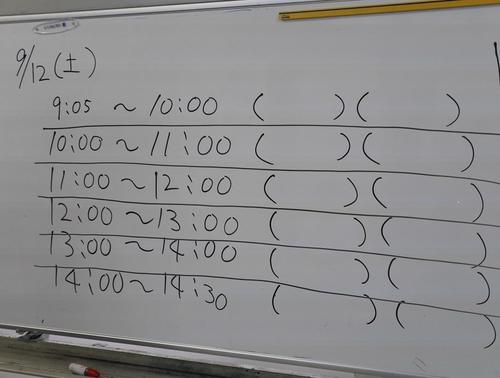 9/12(土)
9:05 ~ 10:00 ( )( )
10:00 ~ 11:00 ( )( )
11:00 ~ 12:00 ( )( )
12:00 ~ 13:00 ( )( )
13:00 ~ 14:00 ( )( )
14:00 ~ 14:30 ( )( )